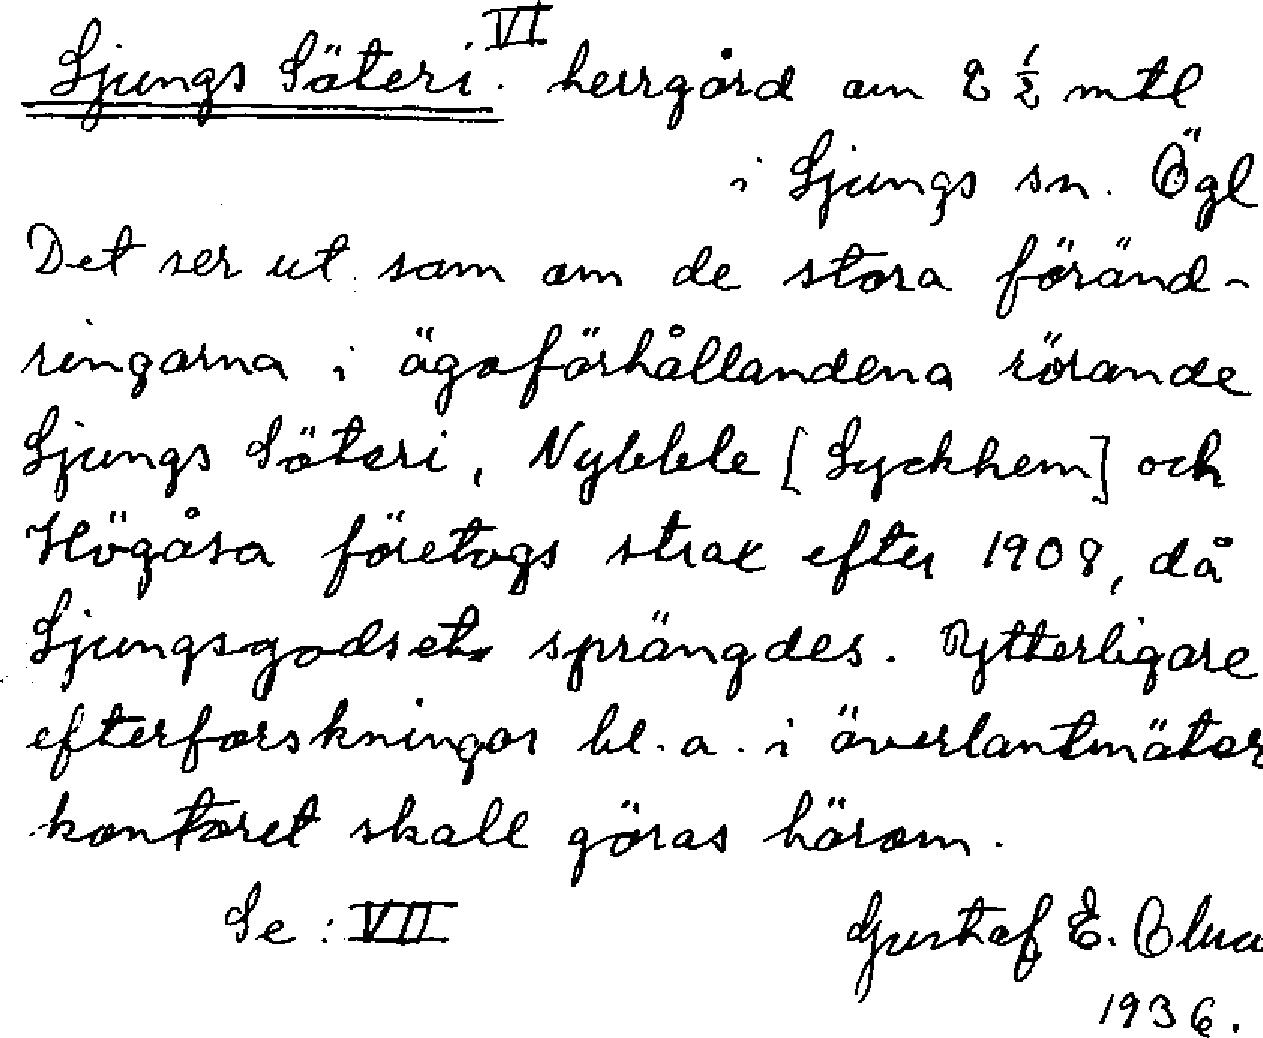 Ljungs Säteri. VI herrgård om 8 1/2 mtl
i Ljungs sn. Ögl
Det ser ut som om de stora föränd-
ringarna i ägoförhållandena rörande
Ljungs Säteri, Nybble [Lyckhem] och
Högåsa företogs strax efter 1908, då
Ljungsgodset sprängdes. Ytterligare
efterforskningar bl. a. i överlantmätar
kontoret skall göras härom.
Se: VII Gustaf E.
1936.